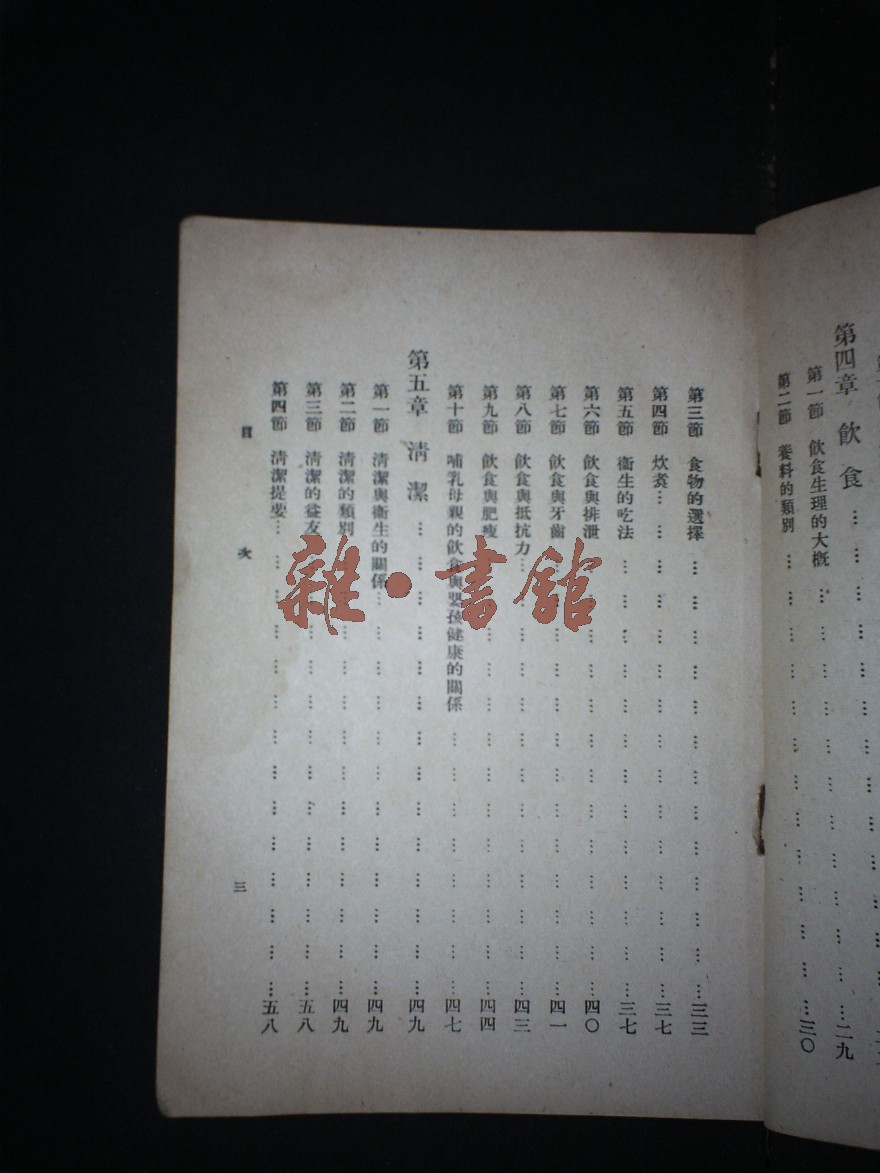 第四章 飲食……二九
第一節 飲食生理的大概……
第二節 養料的類別……三〇
第三節 食物的選擇……三三
第四節 炊煮……三七
第五節 衞生的吃法……三七
第六節 飲食與排泄……四〇
第七節 飲食與牙齒……四一
第八節 飲食與抵抗力……四三
第九節 飲食與肥瘦……四四
第十節 哺乳母親的飲食與嬰孩健康的關係……四七
第五章 清潔……四九
第一節 清潔與衞生的關係……四九
第二節 清潔的類別……四九
第三節 清潔的益友……五八
第四節 清潔提要……五八
目次
三
雜·書館